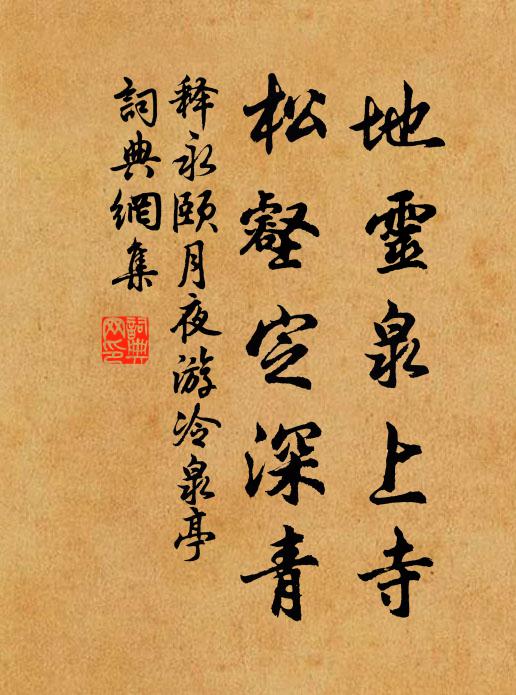 地靈泉上寺
松壑定深青
释永頤月夜游冷泉亭
詞典網集
詞典網印